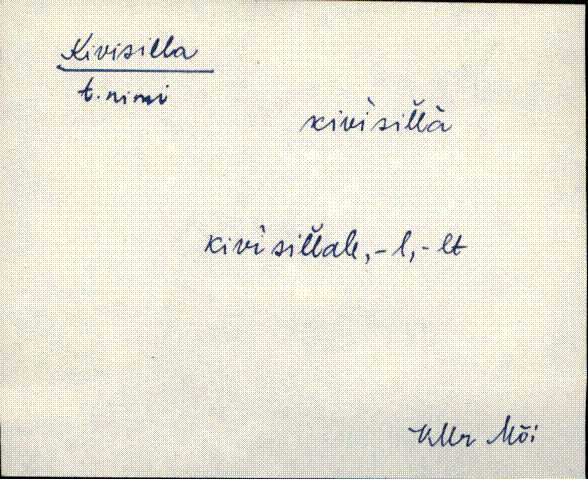 Kivisilla
t. nimi
kivìsil̆l̆à
kivìsil̆l̆ale, -l, -lt
Mõi